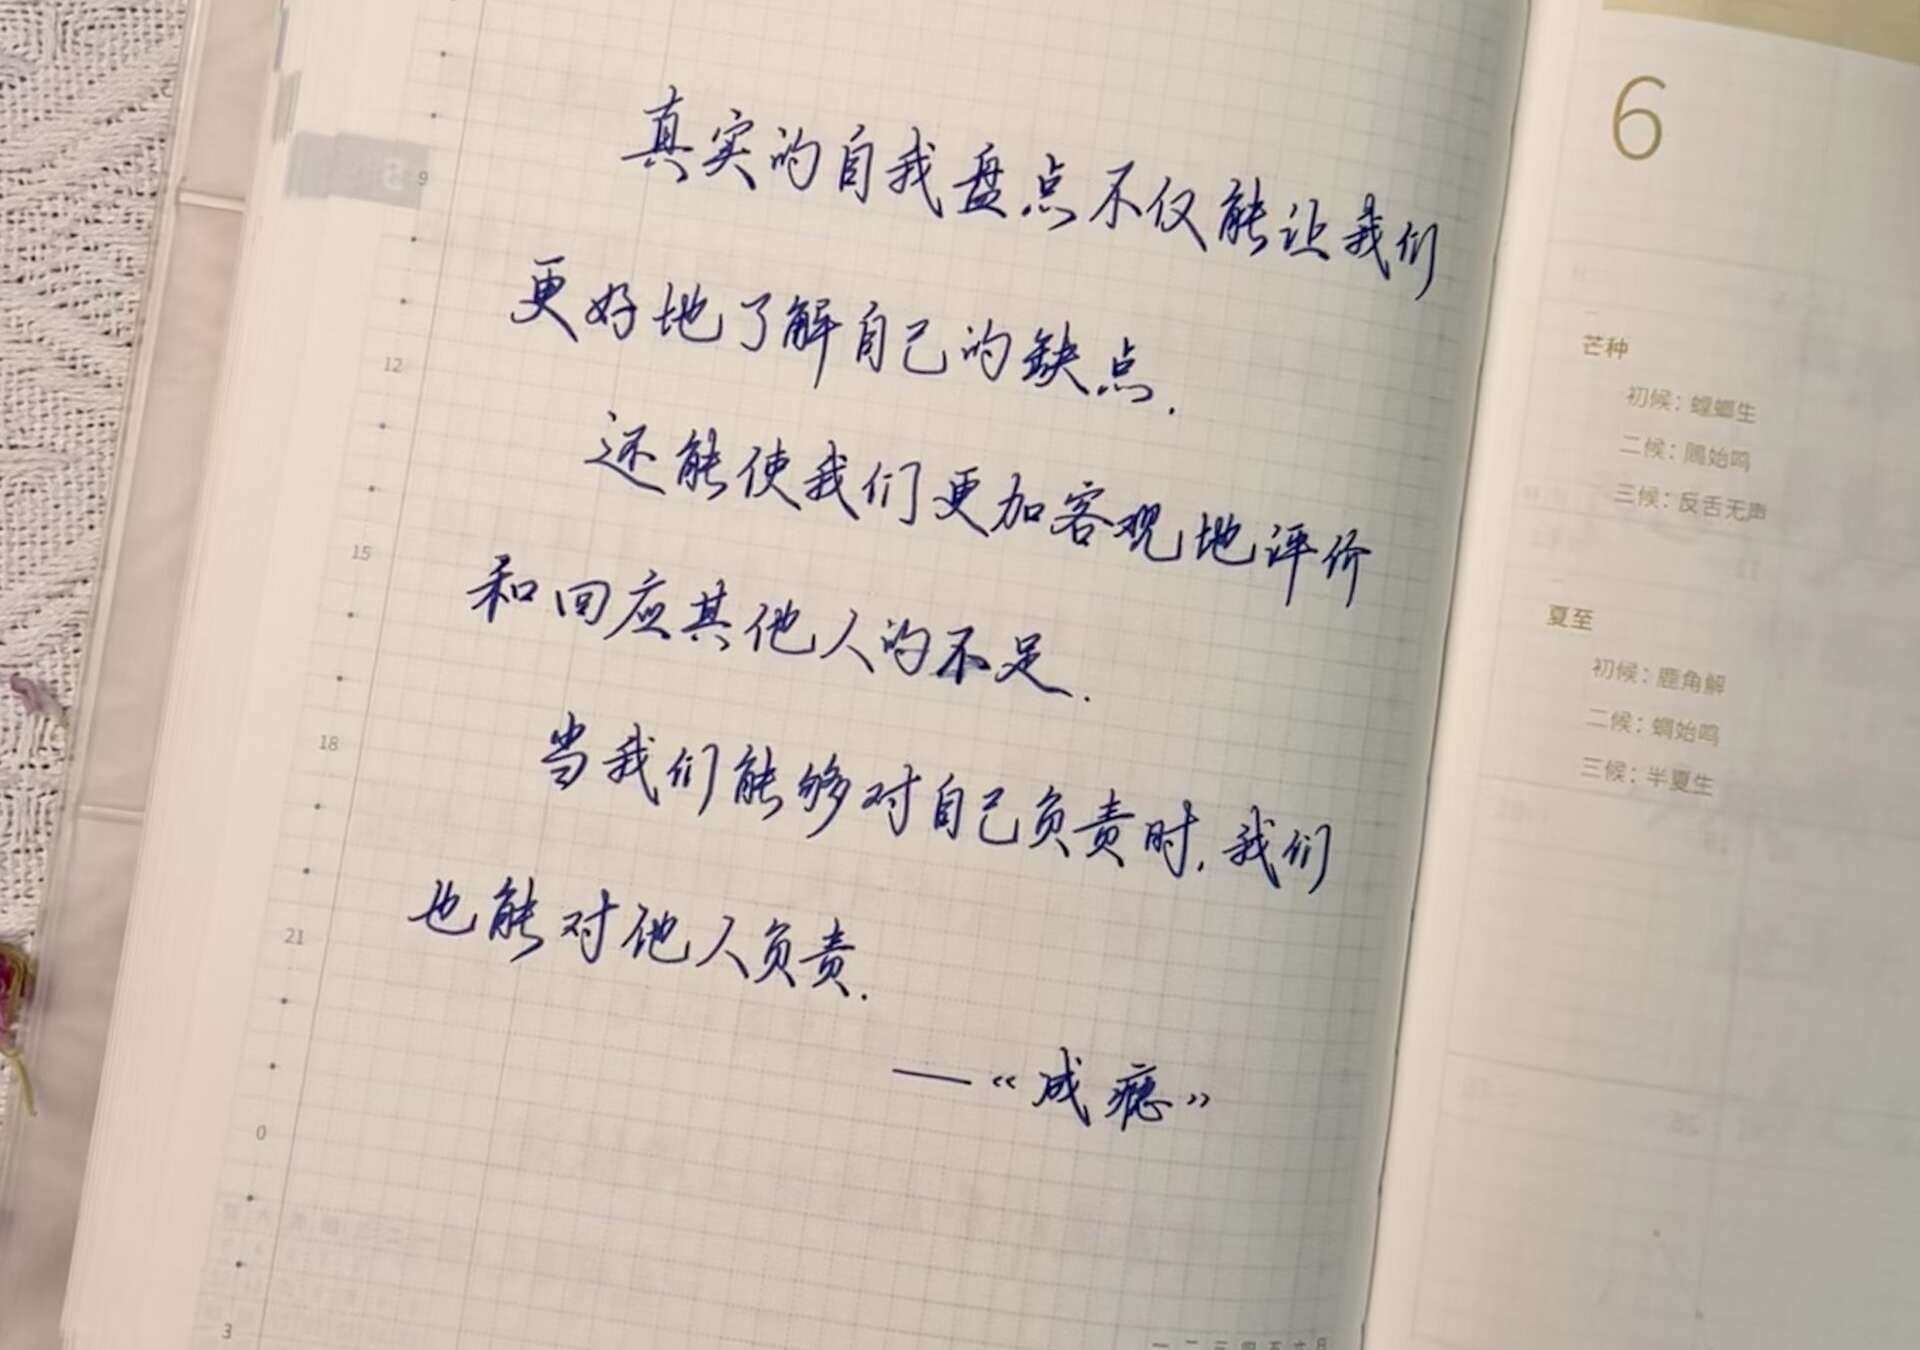 真实的自我盘点不仅能让我们
更好地了解自己的缺点.
还能使我们更加客观地评价
和回应其他人的不足.
当我们能够对自己负责时,我们
也能对他人负责.
——“成瘾”
9
12
15
18
21
0
3
一二三四五六日
6
芒种
初候：螳螂生
二候：鵙始鸣
三候：反舌无声
夏至
初候：鹿角解
二候：蜩始鸣
三候：半夏生